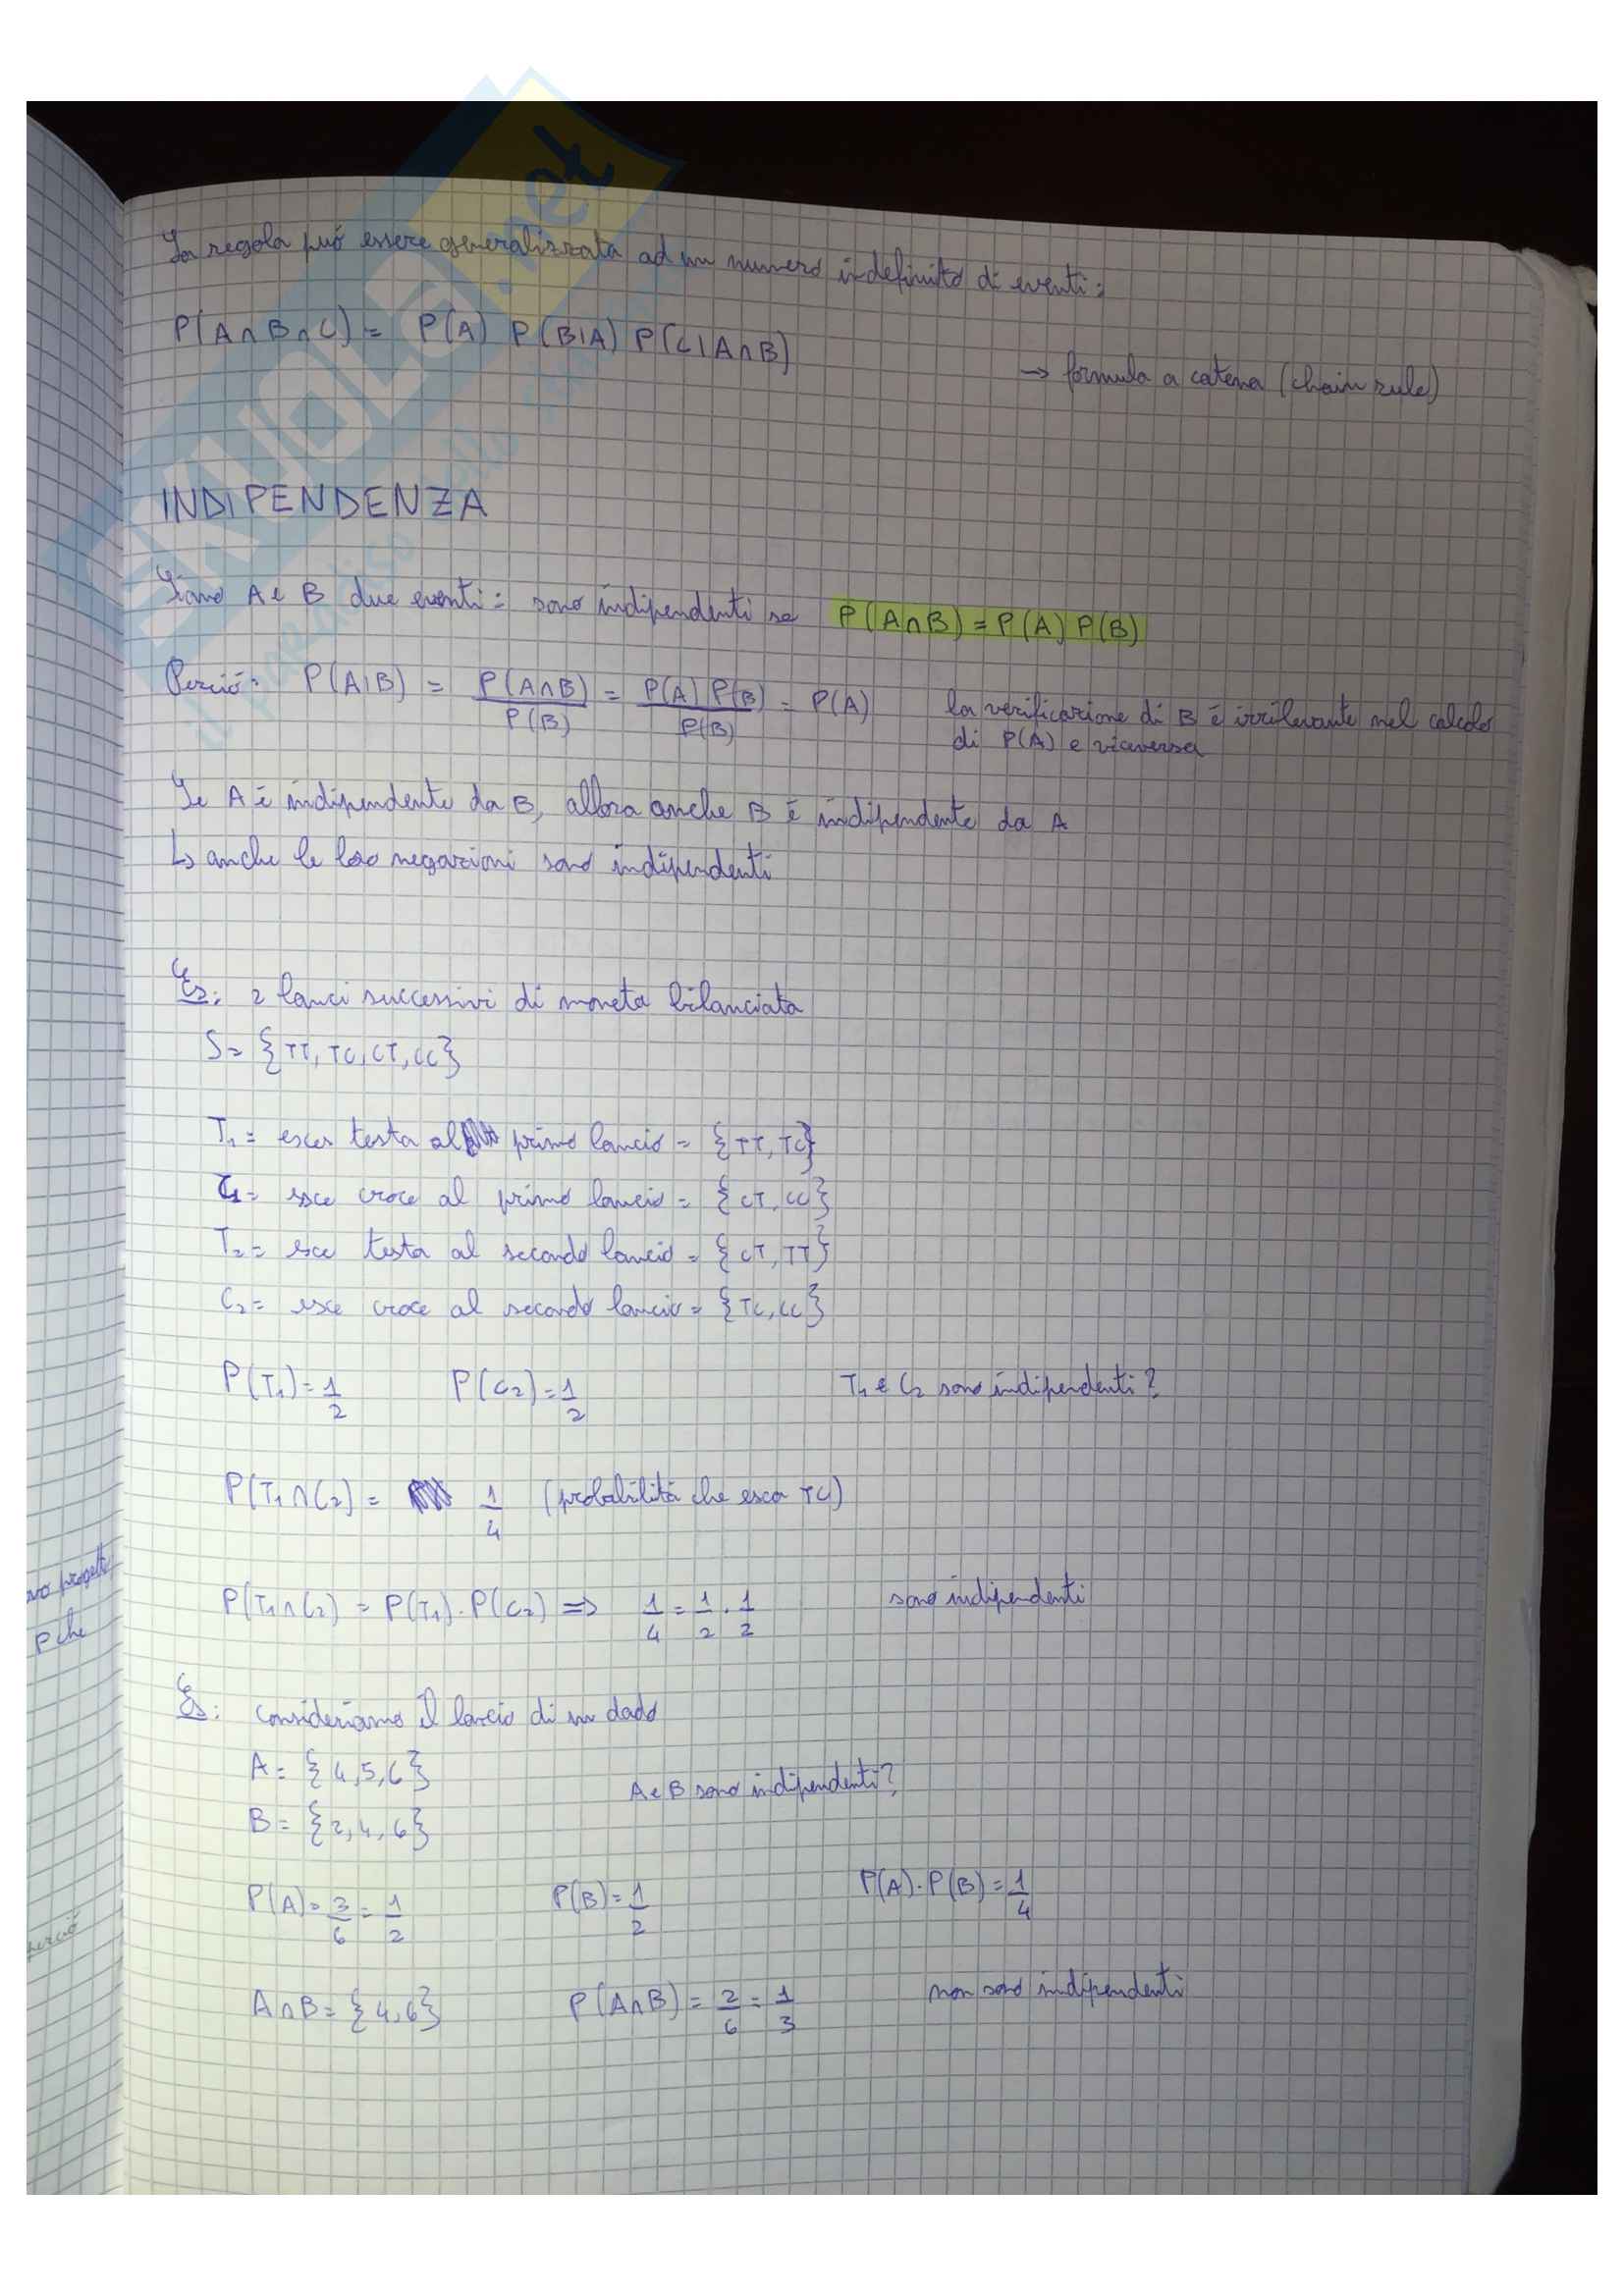 La regola può essere generalizzata ad un numero indefinito di eventi:
P(A∩B∩C) = P(A) P(B|A) P(C|A∩B)
→ formula a catena (chain rule)
INDIPENDENZA
Siano A e B due eventi: sono indipendenti se P(A∩B) = P(A) P(B)
Perciò: P(A|B) = P(A∩B)/P(B) = P(A) P(B)/P(B) = P(A) la verificazione di B è irrilevante nel calcolo
di P(A) e viceversa
Se A è indipendente da B, allora anche B è indipendente da A
↳ anche le loro negazioni sono indipendenti
Es: 2 lanci successivi di moneta bilanciata
S = {TT, TC, CT, CC}
T₁ = esce testa al primo lancio = {TT, TC}
C₁ = esce croce al primo lancio = {CT, CC}
T₂ = esce testa al secondo lancio = {CT, TT}
C₂ = esce croce al secondo lancio = {TC, CC}
P(T₁) = 1/2 P(C₂) = 1/2 T₁ e C₂ sono indipendenti?
P(T₁∩C₂) = 1/4 (probabilità che esca TC)
P(T₁∩C₂) = P(T₁) · P(C₂) => 1/4 = 1/2 · 1/2 sono indipendenti
Es: consideriamo il lancio di un dado
A = {4,5,6}
A e B sono indipendenti?
B = {2,4,6}
P(A) = 3/6 = 1/2 P(B) = 1/2 P(A) · P(B) = 1/4
A∩B = {4,6} P(A∩B) = 2/6 = 1/3 non sono indipendenti
SKUOLA.net